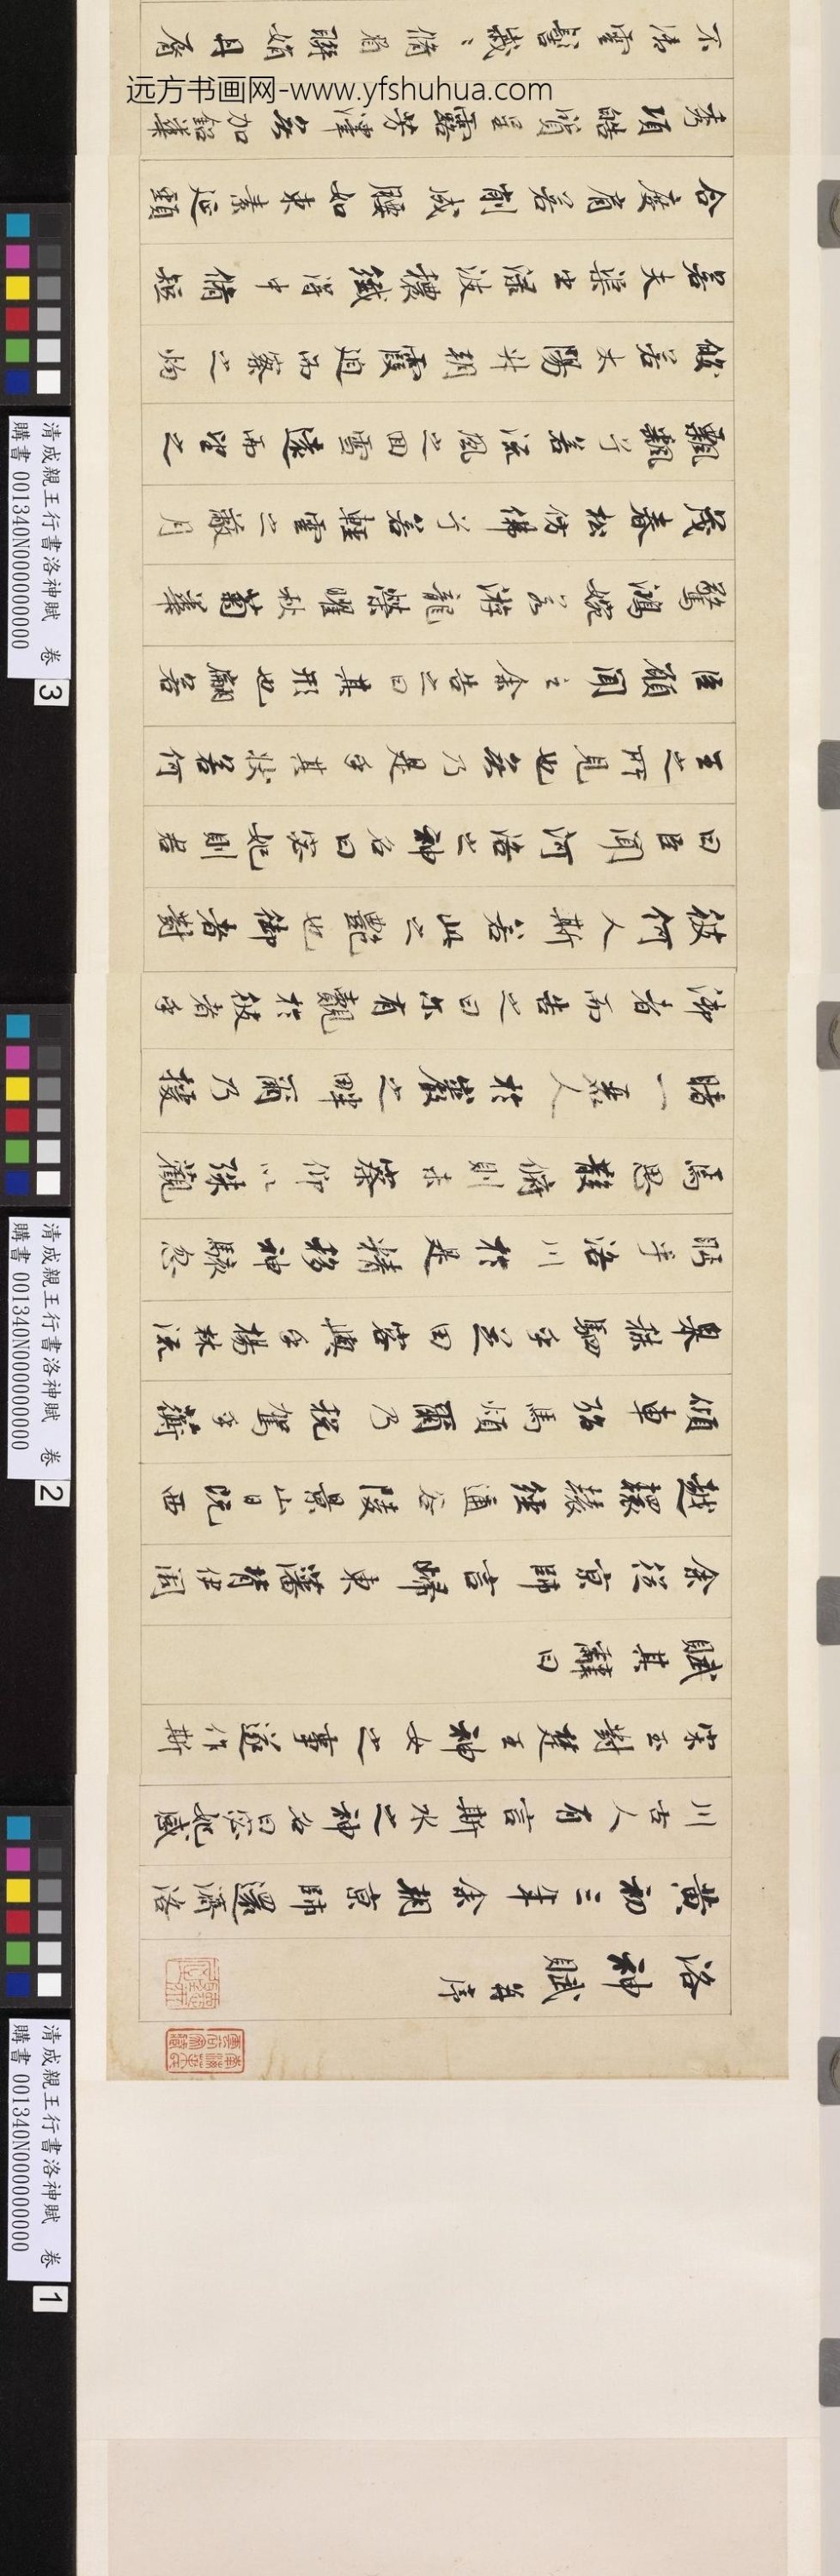 洛神賦 并序
黃初三年余朝京師還濟洛
川古人有言斯水之神名曰宓妃感
宋玉對楚王神女之事遂作斯
賦其辭曰
余從京師言歸東藩背伊闕
越轘轅經通谷陵景山日既西
傾車殆馬煩爾乃稅駕乎蘅
皋秣駟乎芝田容與乎楊林流
眄乎洛川於是精移神駭忽
焉思散俯則未察仰以殊觀
睹一麗人於巖之畔爾乃援
御者而告之曰尔有覿於彼者乎
彼何人斯若此之豔也御者對
曰臣聞河洛之神名曰宓妃則君
王之所見也無乃是乎其狀若何
臣願聞之余告之曰其形也翩若
驚鴻婉若游龍榮曜秋菊華
茂春松仿佛兮若輕雲之蔽月
飄颻兮若流風之回雪遠而望之
皎若太陽升朝霞迫而察之灼
若夫渠出淥波穠纖得中脩短
合度肩若削成腰如束素延頸
秀項皓質呈露芳澤無加鉛華
不御雲髻峨〻脩眉聯娟丹脣
远方书画网-www.yfshuhua.com
清成親王行書洛神賦 卷
購書 001340N000000000
1
清成親王行書洛神賦 卷
購書 001340N000000000
2
清成親王行書洛神賦 卷
購書 001340N000000000
3